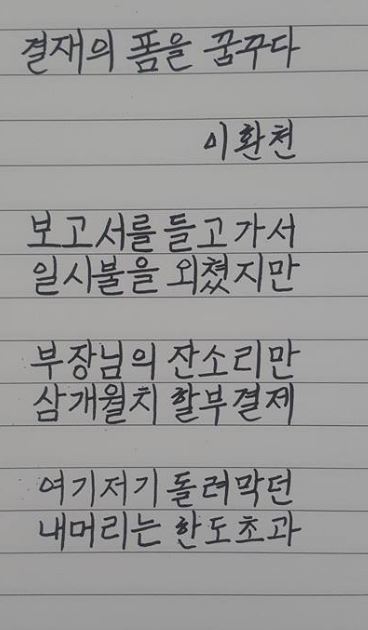 결재의 폼을 꿈꾸다
이환천
보고서를 들고가서
일시불을 외쳤지만
부장님의 잔소리만
삼개월치 할부결제
여기저기 돌려막던
내머리는 한도초과